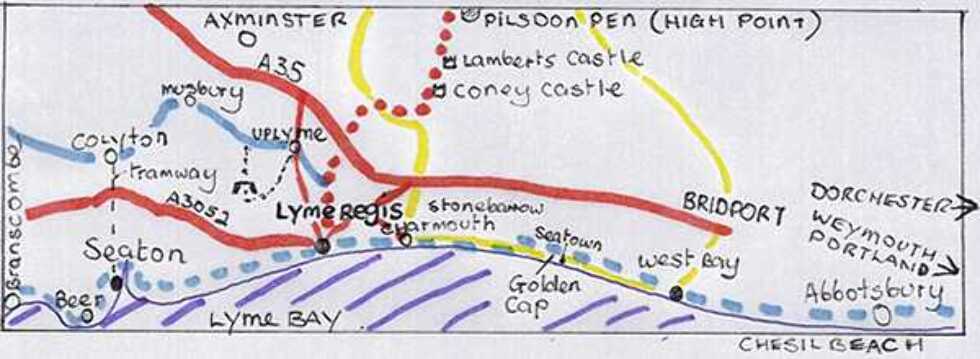 AXMINSTER
PILSDON PEN (HIGH POINT)
A35
Lamberts Castle
musbury
Coney Castle
UPLYME
COLYTON
tramway
Branscombe
A3052
Lyme Regis
Stonebarrow
CHARMOUTH
BRIDPORT
DORCHESTER
WEYMOUTH
PORTLAND
Seaton
Seatown
West Bay
Golden
Cap
Abbotsbury
Beer
LYME BAY
CHESIL BEACH